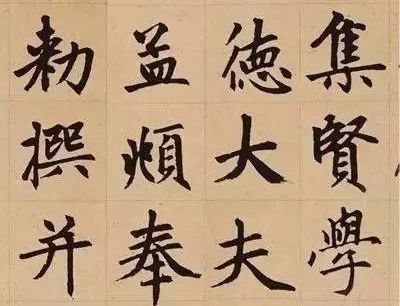 集賢學
德大夫
孟頫奉
勅撰并